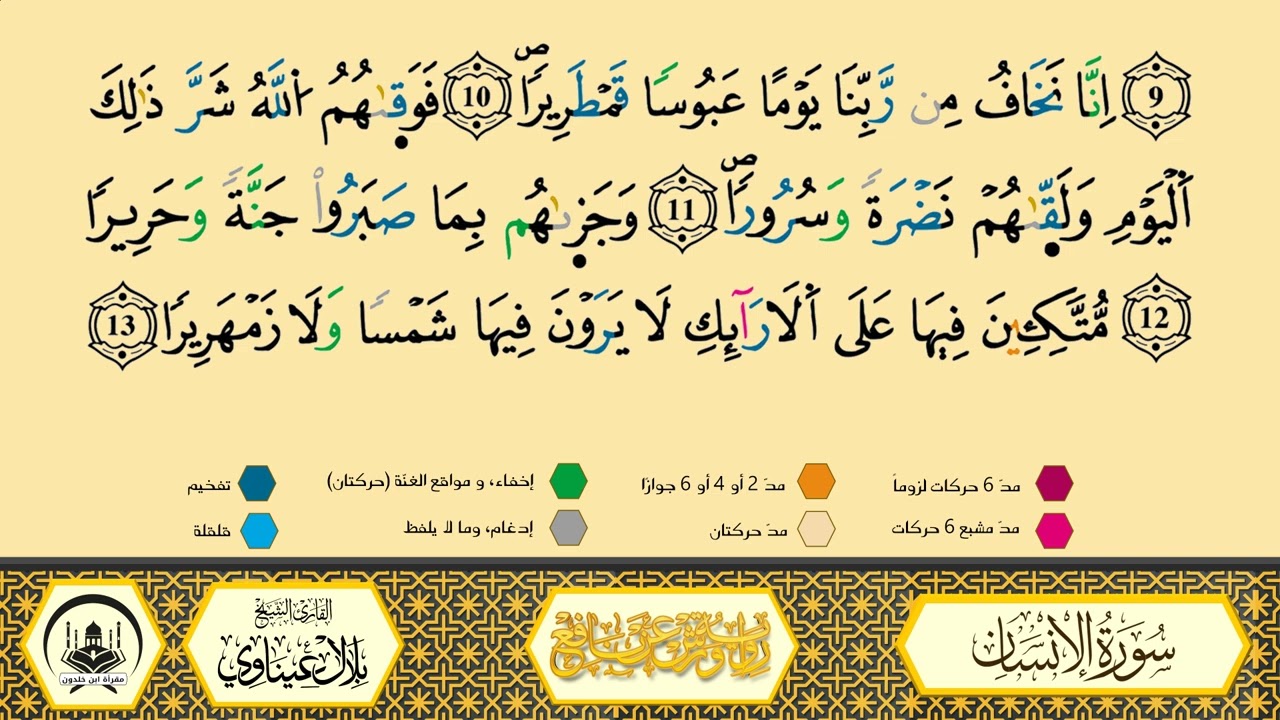 9 اِنَّا نَخَافُ مِن رَّبِّنَا يَوْمًا عَبُوسًا قَمْطَرِيرًا 10 فَوَقٜىٰهُمُ اُ۬للَّهُ شَرَّ ذَٰلِكَ
اَ۬لْيَوْمِ وَلَقّٜىٰهُمْ نَضْرَةً وَسُرُورًا 11 وَجَزٜىٰهُم بِمَا صَبَرُواْ جَنَّةً وَحَرِيرًا
12 مُّتَّكِـِٕينَ فِيهَا عَلَى اَ۬لَارَآئِكِ لَا يَرَوْنَ فِيهَا شَمْسًا وَلَا زَمْهَرِيرًا 13
مدّ 6 حركات لزوماً مدّ 2 أو 4 أو 6 جوازًا إخفاء، و مواقع الغنّة (حركتان) تفخيم
مدّ مشبع 6 حركات مدّ حركتان إدغام، وما لا يلفظ قلقلة
سُورَةُ الإِنْسَانِ
رواية ورش عن نافع
القارئ الشيخ
بلال عيناوي
مقرأة ابن خلدون